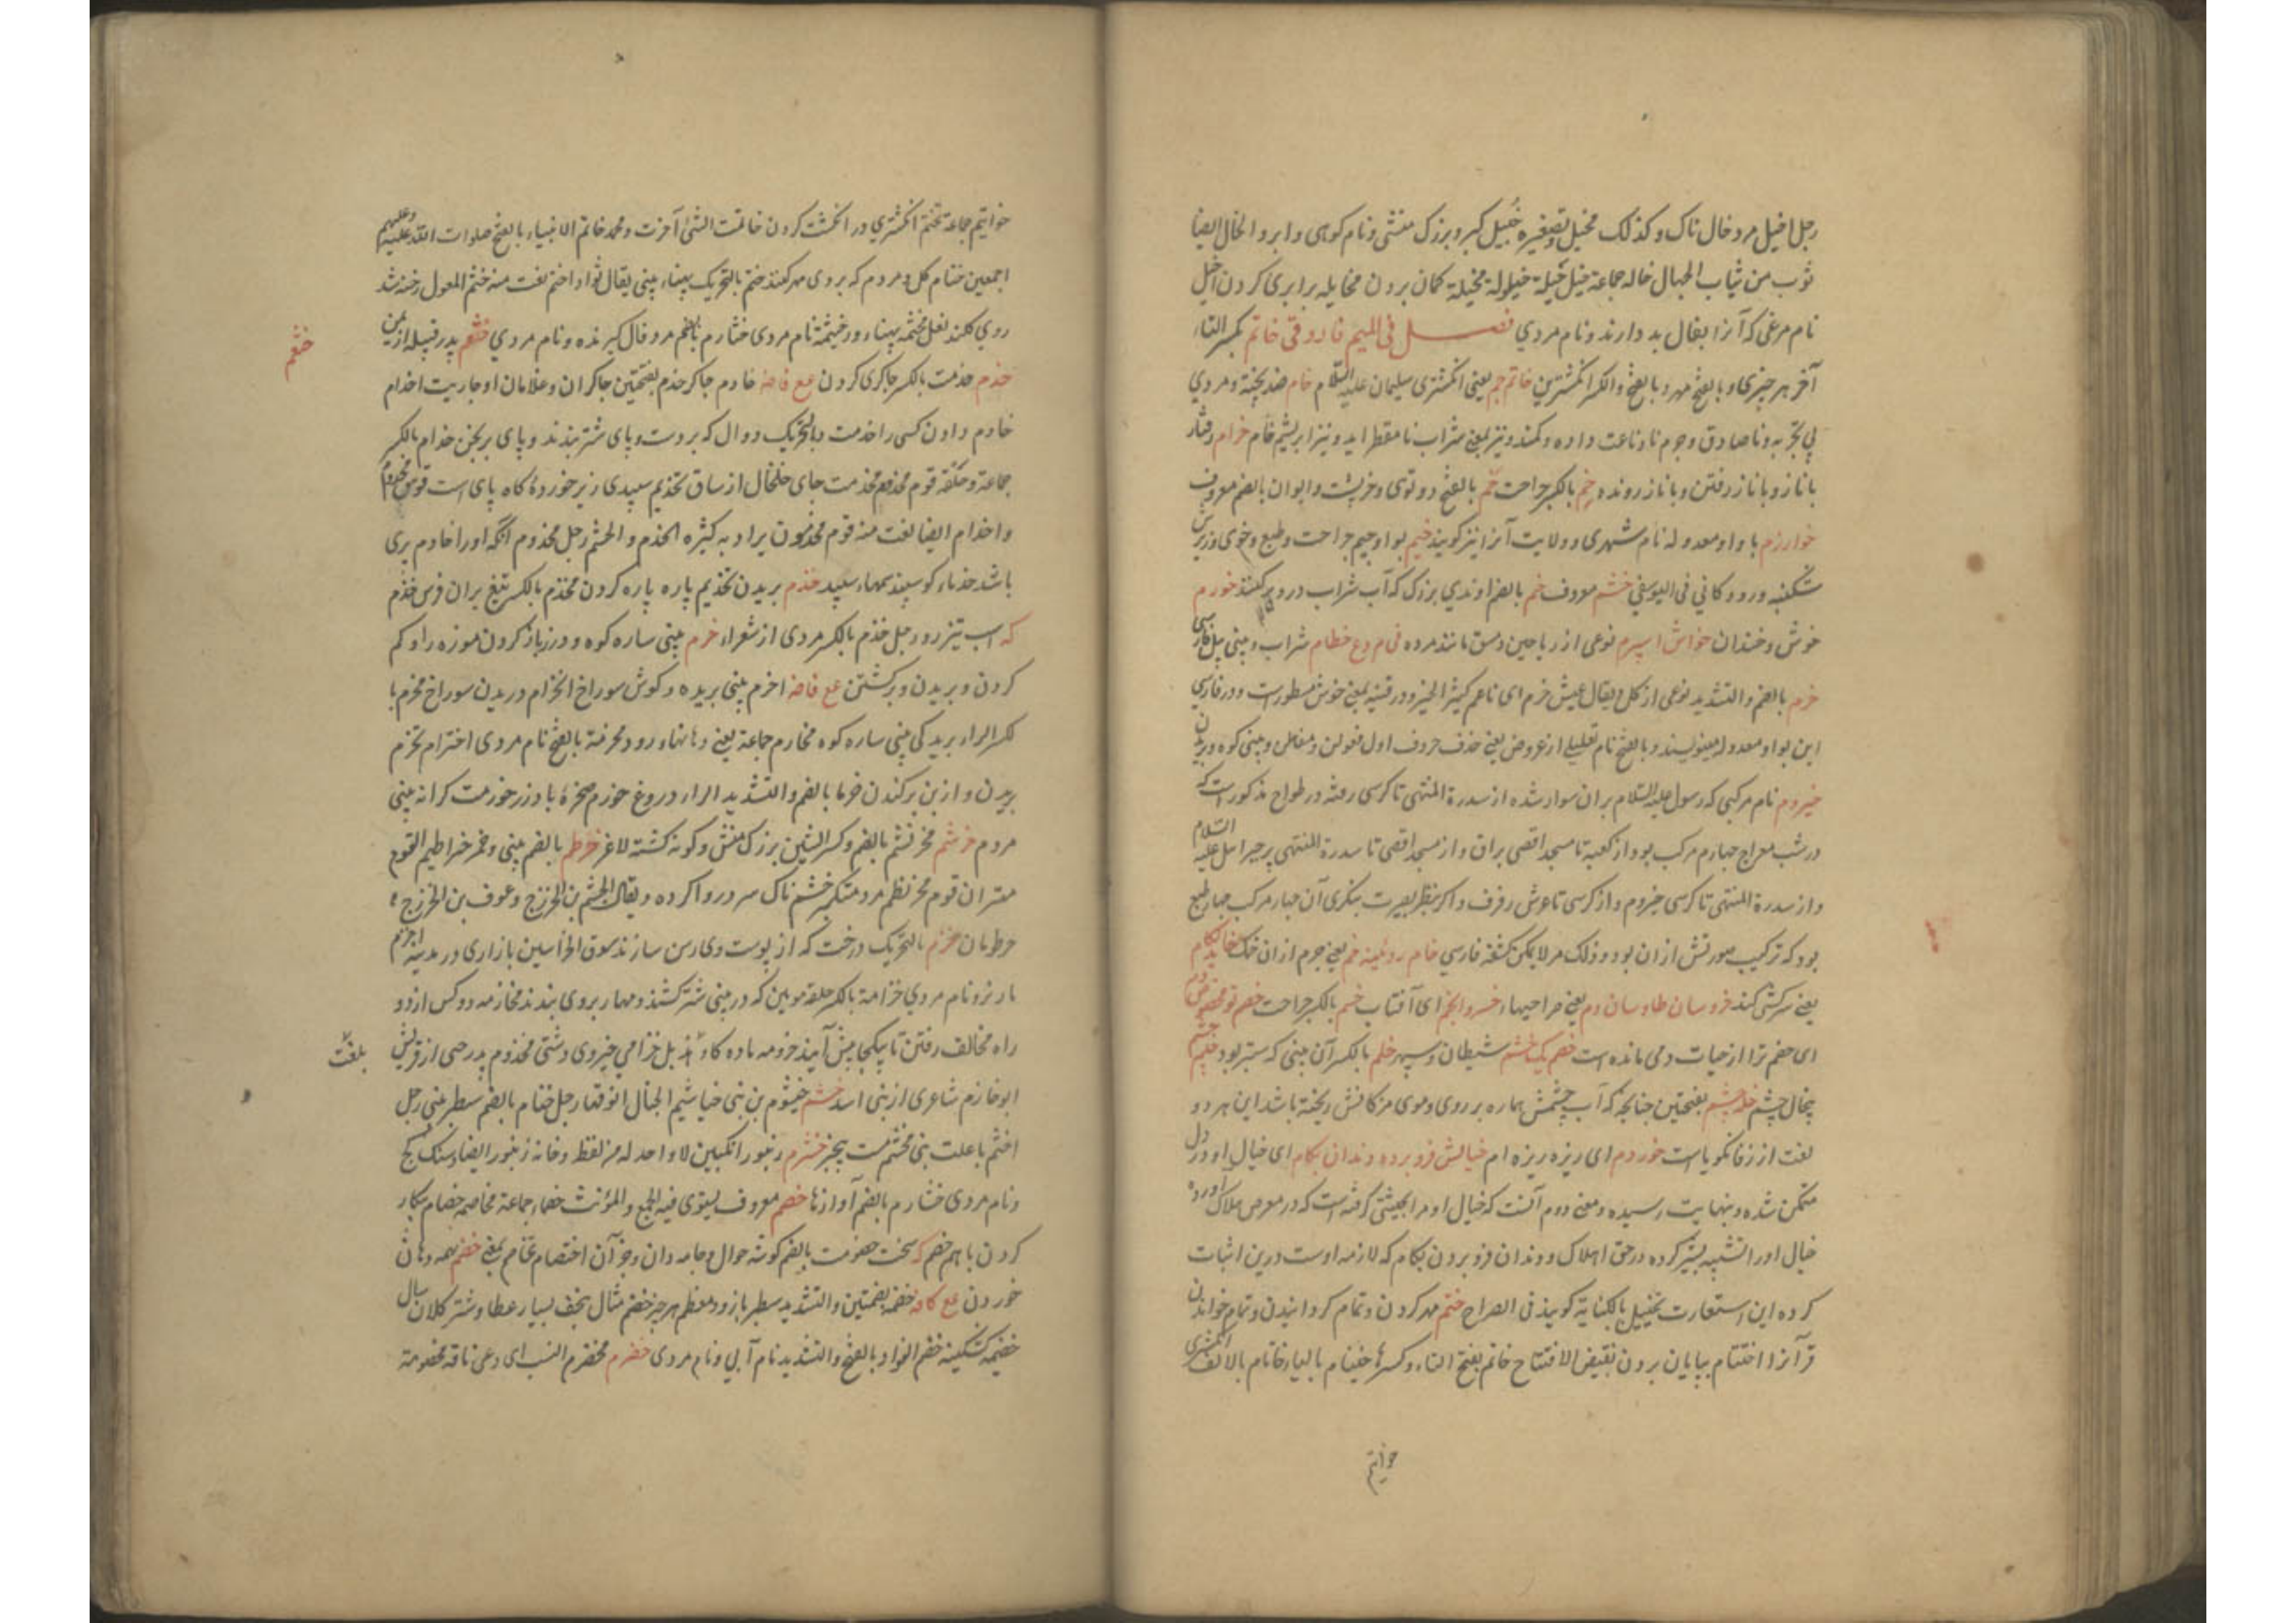 رجل اخیل مرد خال ناک و کذلک مخیل و تصغیره خییل کبر و بزرک منشی و نام کوهی و ابر و الخال ایضا
ثوب من ثیاب الجهال خاله جماعة خیل خیلة خیلولة مخیلة کمان بردن مخایله برابری کردن اخیل
نام مرغی که آنرا بفال بد دارند و نام مردی فصل فی المیم فا رو قی خاتم بکسر التاء
آخر هر چیزی و بالفتح مهر و بالفتح و الکسر انکشترین خاتم جم یعنی انکشتری سلیمان علیه السلام خام ضد پخته و مردی
بی تجربه و ناصادق و چرم نادباغت داده و کمند و نیز بمعنی شراب نامقطر اید و نیز ابریشم خام خرام رفتار
با ناز و با ناز رفتن و با ناز رونده خم بالکسر جراحت خم بالفتح دو توی و خرپشت و ایوان بالضم معروف
خوارزم با واو معدوله نام شهری و ولایت آنرا نیز کویند خیم بواو جیم جراحت و طبع و خوی
شکنبه و رودکانی فی الیوسفی خشم معروف خم بالضم اوندی بزرک که آب شراب درو پر کنند خورم
خوش و خندان خواش اسپرم نوعی از ریاحین مانند مرده فی م و ع خطام شراب و بینی
خرم بالضم و التشدید نوعی از کل و یقال عیش خرم ای ناعم کثیر الخیر و در قنیه بمعنی خوش مسطورست و در فارسی
این بواو معدوله مینویسند و بالفتح نام تعلیلی از عروض یعنی حذف حروف اول فعولن و مفاعلن و بینی کوه و بریدن
خیزوم نام مرکبی که رسول علیه السلام بران سوار شده از سدرة المنتهی تا کرسی رفته در طوالح مذکور است که
در شب معراج چهارم مرکب بود از کعبه تا مسجد اقصی براق و از مسجد اقصی تا سدرة المنتهی پر جبراییل علیه السلام
و از سدرة المنتهی تا کرسی خیزوم و از کرسی تا عرش رفرف و اکر بنظر بصیرت بنکری آن چهار مرکب چهار طبع
بود که ترکیب صورتش ازان بود و ذلک مر لا یمکن کشفه فارسی خام روئینه خم یعنی چرم ازان خنک خایدکام
یعنی سرکشی کند خروسان طاوسان دم یعنی صراحیها خسرو انجم ای آفتاب خشم بالکسر جراحت خصم تو
ای خصم ترا از حیات دمی مانده است خصم خشم شیطان و سپهر خلم بالکسر آن بینی که ستبر بود
خیال چشم خله چشم بفتحتین چنانچه که آب چشمش هماره بر روی و موی مژکانش ریخته باشد این هر دو
لغت از زفانکویاست خوردم ای ریزه ریزه ام خیالش فرو برده دندان بکام ای خیال او در دل
متمکن شده و بنهایت رسیده و معنی دوم آنست که خیال او مرا بحیثیتی کرفته است که در معرض هلاک آورده
خیال او را تشبیه بشیر کرده در حق اهلاک و دندان فرو بردن بکام که لازمه اوست درین اثبات
کرده این استعارت تخییل بالکنایة کویند فی الصراح ختم مهر کردن و تمام کردانیدن و تمام خواندن
قرآنرا اختتام بپایان بردن نقیض الافتتاح خاتم بفتح التاء و کسرها خیتام بالیاء خاتام بالالف انکشتری
خواتیم
خواتیم جماعة تختم انکشتری در انکشت کردن خاتمت الشی آخرت و محمد خاتم الانبیاء بالفتح صلوات الله علیه و علیهم
اجمعین ختام کل و مردم که بروی مهر کنند خثم بالتحریک پهناء بینی یقال ثور اخثم نعت منه خثم المعول رخنه شد
روی کلند نعل مخثمة پهناور خیثمة نام مردی خثارم بالضم مرد فال کیرنده و نام مردی خثعم پدر قبیله از یمن
خثعم
خدم خدمت بالکسر چاکری کردن مع فاضه خادم چاکر خدم بفتحتین چاکران و غلامان او جاریت اخدام
خادم دادن کسی را خدمت بالتحریک دوال که بر دست و پای شتر بندند و پای برنجن خدام بالکسر
جماعة و حلقة قوم مخدم مخدمت جای خلخال از ساق تخدیم سپیدی زیر خورده کاه پای است
و اخدام ایضا نعت منه قوم مخدمون یراد به کثیره الخدم و الحشم رجل مخدوم آنکه او را خادم پری
باشد خدماء کوسپند سمهاء سپید خذم بریدن تخذیم پاره پاره کردن مخذم بالکسر تیغ بران فرس خذم
که اسب تیزرو رجل خذم بالکسر مردی از شعراء خرم بینی ساره کوه و درز باز کردن موزه را و کم
کردن و بریدن و برکشتن مع فاضه اخرم بینی بریده و کوش سوراخ انخرام دریدن سوراخ مخرم با
لکسر الراء بریدکی بینی ساره کوه مخارم جماعة یعنی دهانهاء رود مخرمة بالفتح نام مردی اخترام تخرم
بریدن و از بن برکندن خرما بالضم و التشدید الراء دروغ خورم صخرة با درز خورمت کرانه بینی
مردم خرشم مخرنشم بالضم و کسر الشین بزرک منش و کونه کشته لاغر خرطم بالضم بینی و خمر خراطیم القوم
مهتران قوم مخرنطم مرد متکبر خشمناک سر در وا کرده و یقال لجشم بن الخزرج و عوف بن الخزرج
خرطومان خزم بالتحریک درخت که از پوست وی رسن سازند سوق الخزامین بازاری در مدینه اخزم
مار نر و نام مردی خزامة بالکسر حلقه مویین که در بینی شتر کشند و مهار بر وی بندند مخازمه دو کس از دو
راه مخالف رفتن تا یکجا پیش آیند خزومه ماده کاو خزامی خیروی دشتی مخزوم پدر حی از قریش
بلغت
ابو خازم شاعری از بنی اسد خشم خیشوم بن بینی خیاشیم الجبال انوفها رجل خشام بالضم سطبر بینی رجل
اخشم با علت بینی مخشم مست بیخبر خشرم زنبور انکبین لا واحد له من لفظه و خانه زنبور ایضا و سنک کج
و نام مردی خشارم بالضم آوازها خصم معروف یستوی فیه الجمع و المؤنث خصماء جماعة مخاصمه خصام پیکار
کردن با هم خصم که سخت خصومت بالضم کوشه جوال و جامه دان و جز آن اختصام تخاصم بمعنی خضم همه دهان
خوردن مع کافه خضمه بضمتین و التشدید سطبر بازو و معظم هر چیز خضم مثال هجف بسیار عطا و شتر کلان سال
خضیمه کشکینه خضم الفؤاد بالفتح و التشدید نام آبی و نام مردی خضرم مخضرم النسب ای دعی ناقه مخضرمة